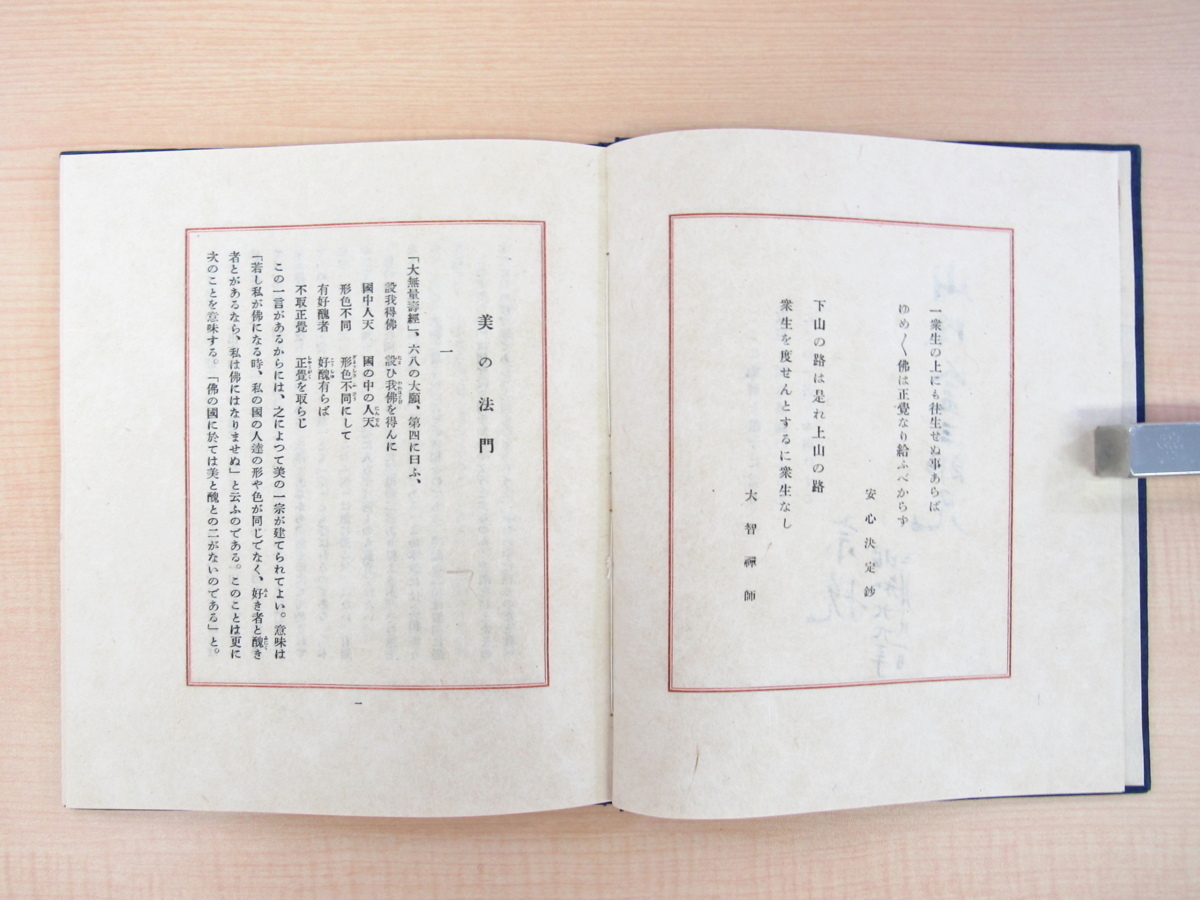 一衆生の上にも徃生せぬ事あらば
ゆめ〱佛は正覺なり給ふべからず
安心決定鈔
下山の路は是れ上山の路
衆生を度せんとするに衆生なし
大智禪師
美の法門
一
「大無量壽經」、六八の大願、第四に曰ふ、
設我得佛　設ひ我佛を得んに
國中人天　國の中の人天
形色不同　形色不同にして
有好醜者　好醜有らば
不取正覺　正覺を取らじ
この一言があるからには、之によつて美の一宗が建てられてよい。意味は
「若し私が佛になる時、私の國の人達の形や色が同じでなく、好き者と醜き
者とがあるなら、私は佛にはなりませぬ」と云ふのである。このことは更に
次のことを意味する。「佛の國に於ては美と醜との二がないのである」と。
一